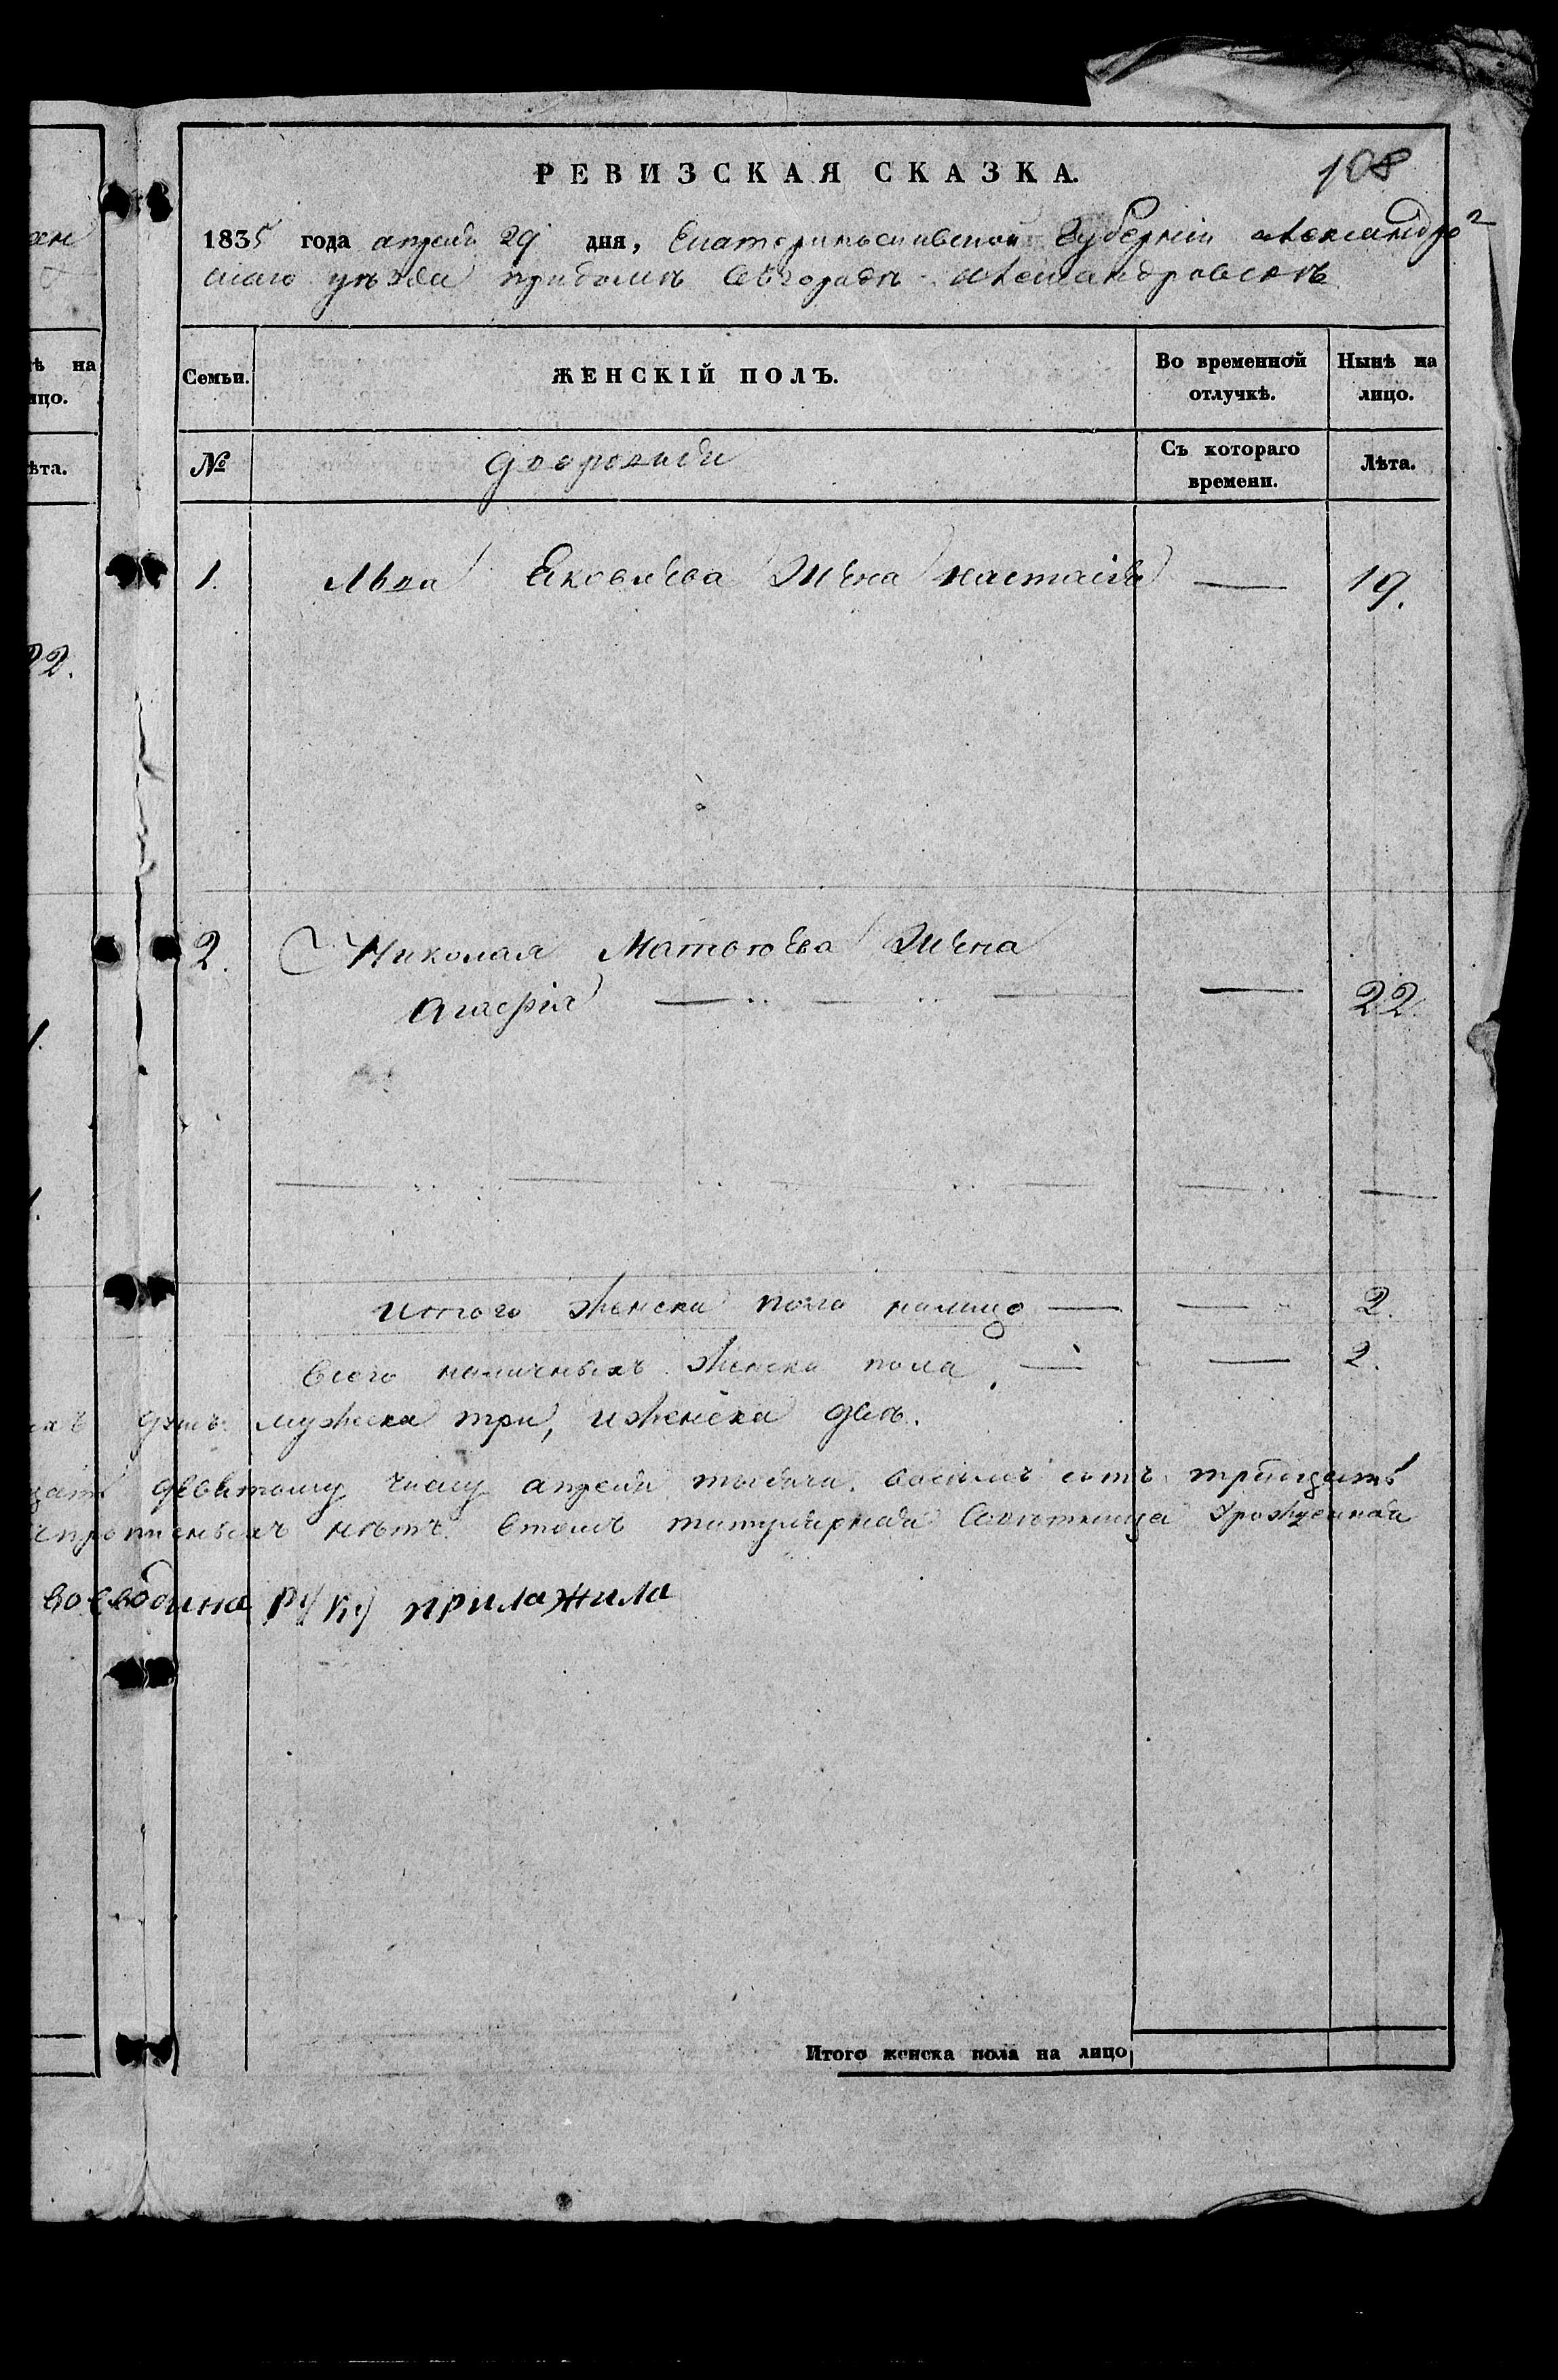 РЕВИЗСКАЯ СКАЗКА.
108
1835 года апреля 29 дня, Екатеринославской Губерніи Александро
скаго уѣзда при домѣ въ городѣ Александровскѣ
Семьи. ЖЕНСКІЙ ПОЛЪ. Во временной отлучкѣ. Нынѣ на лицо.
№ Съ котораго времени. Лѣта.
1. Льва Яковлева жена настасія — 19.
2. Николая Матвѣева жена
Агафія — 22.
итого женска пола налицо — — 2.
Всего наличныхъ женска пола, — — 2.
душъ мужеска три, и женска двѣ.
девятому числу апреля тысяча восемь сотъ тридцать
нѣтъ. втомъ титулярная Советница Урожденная
воеводина руку приложила
Итого женска пола на лицо
ѣ на
ицо.
ѣта.
22.